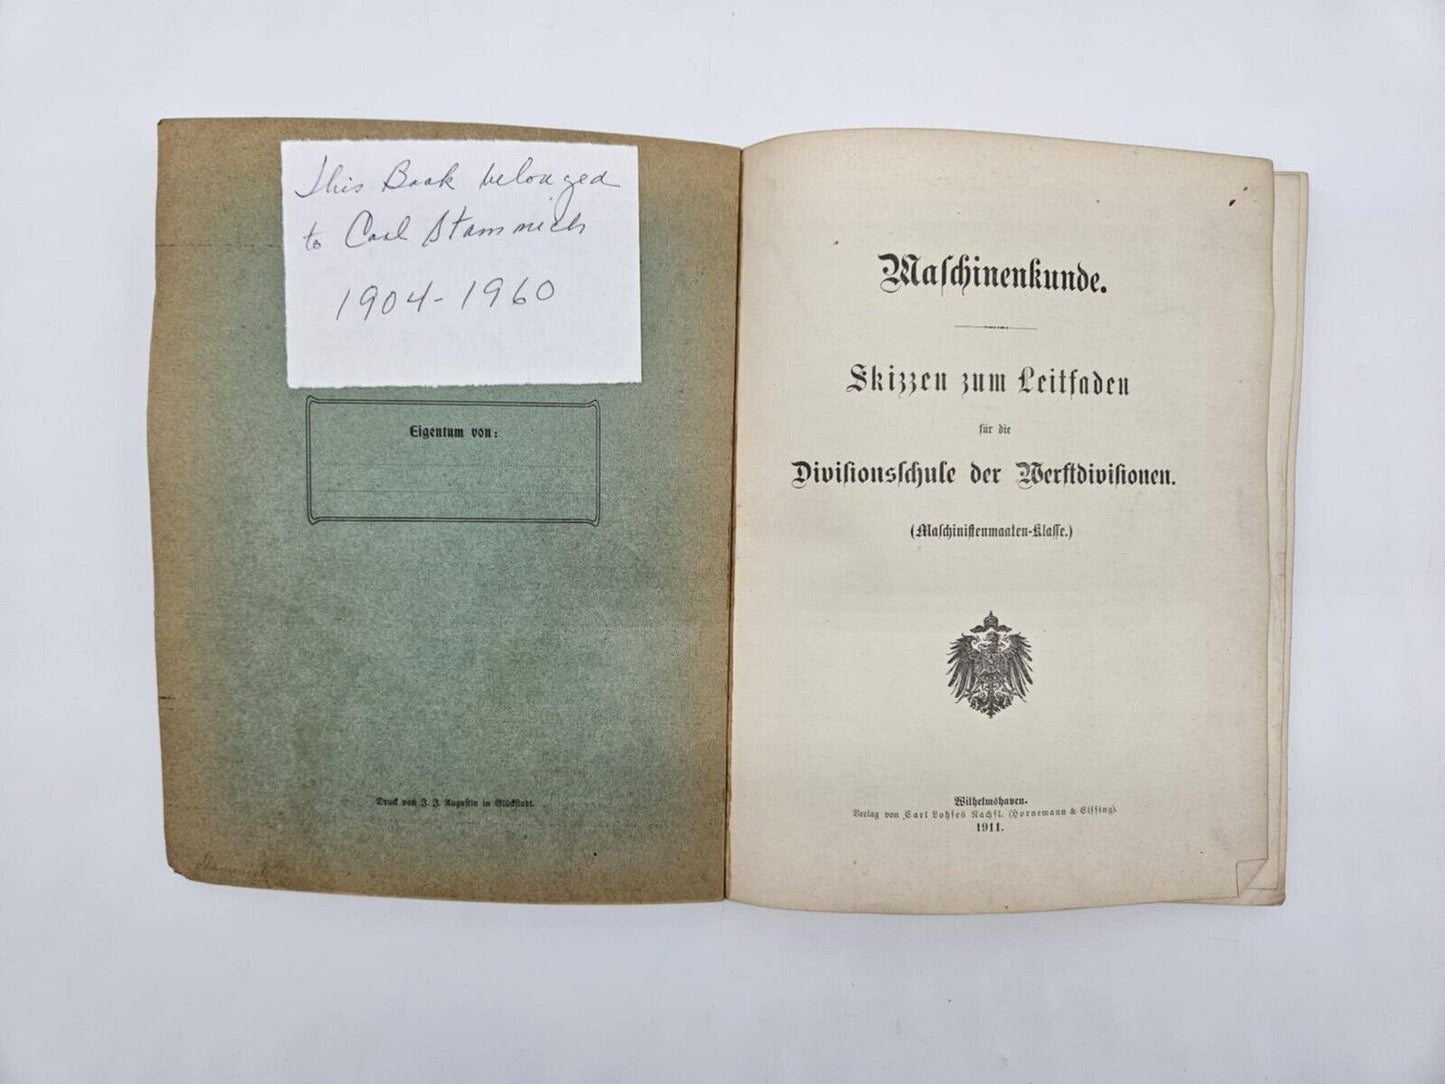 This Book belonged
to Carl Stammich
1904-1960
Eigentum von:
Druck von J. J. Augustin in Glückstadt.
Maschinenkunde.
Skizzen zum Leitfaden
für die
Divisionsschule der Werftdivisionen.
(Maschinistenmaaten-Klasse.)
Wilhelmshaven.
Verlag von Carl Lohses Nachfl. (Hornemann & Eissing).
1911.